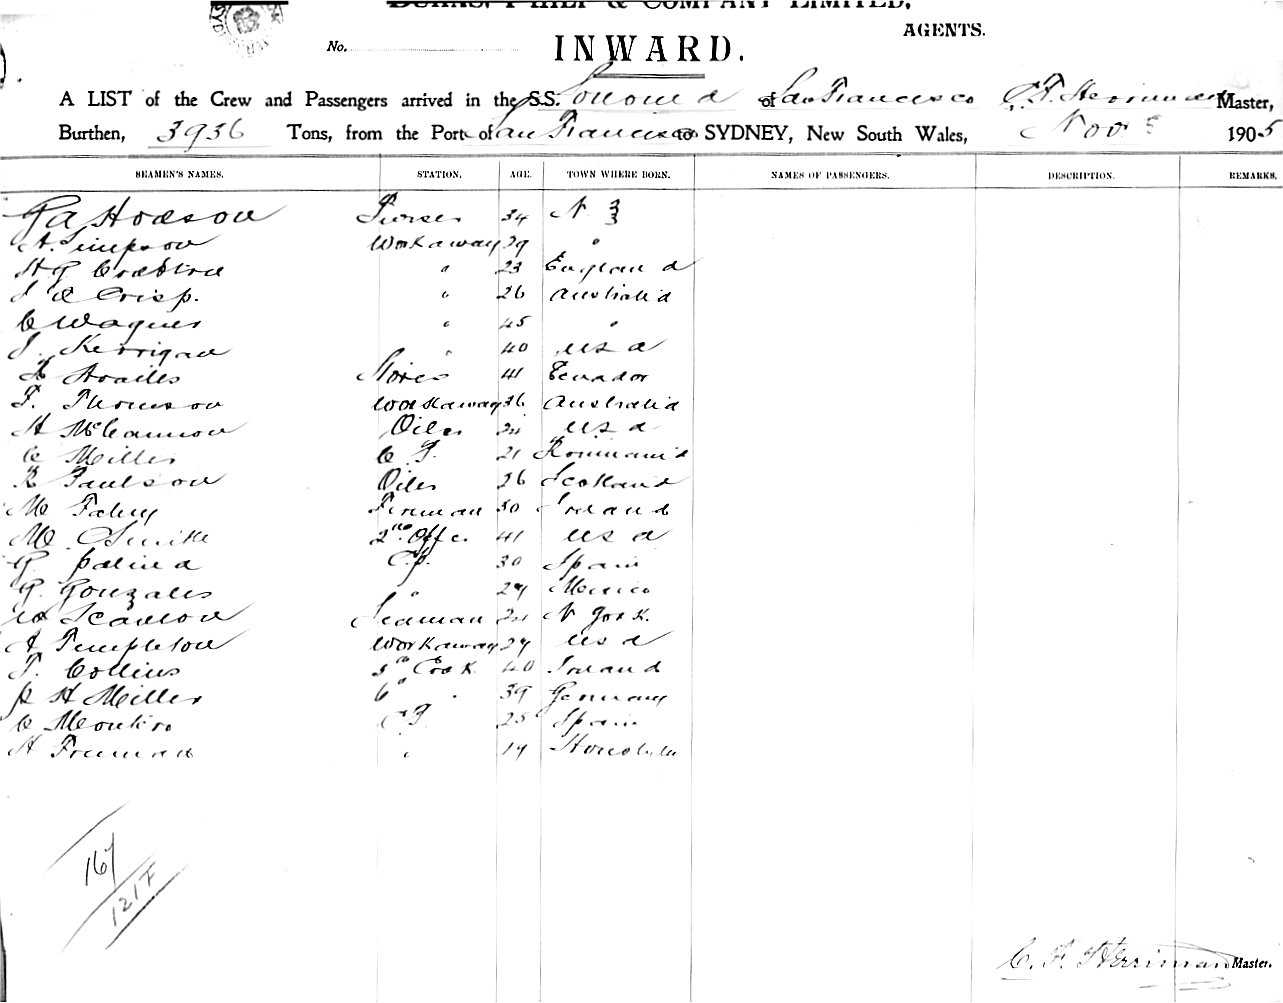 BURNS, PHILP & COMPANY LIMITED,
AGENTS.
No.
INWARD.
A LIST of the Crew and Passengers arrived in the S.S. Sonoma of San Francisco C. F. Herriman Master,
Burthen, 3936 Tons, from the Port of San Francisco to SYDNEY, New South Wales, Nov 1905
SEAMEN'S NAMES. STATION. AGE. TOWN WHERE BORN. NAMES OF PASSENGERS. DESCRIPTION. REMARKS.
G A Hodson Purser 34 N Z
A. Simpson Workaway 29 "
H G Crabtree " 23 England
J A Crisp. " 26 Australia
C Wagner " 45 "
J. Kerrigan " 40 U S A
Stores 41 Ecuador
F. Thomson Workaway 36 Australia
H McCannon Oiler 24 U S A
C Miller C P. 21 Roumania
R Paulson Oiler 26 Scotland
M Fahy Fireman 30 Ireland
M Smith 2nd Offr. 41 U S A
G C.P. 30 Spain
G. Gonzales " 29 Mexico
W Scanlon Seaman 24 N York.
A Templeton Workaway 27 U S A
T. Collins 3rd Cook 40 Ireland
H Miller 6" " 39 Germany
C Monteiro C P. 25 Spain
H Freeman " 19 Honolulu
167
121 F
C. F. Herriman Master.